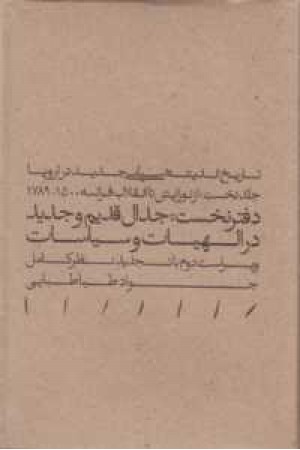 تاریخ اندیشه سیاسی جدید در اروپا
جلد نخست: از نوزایش تا انقلاب فرانسه ۱۵۰۰-۱۷۸۹
دفتر نخست: جدال قدیم و جدید
در الهیات و سیاسات
ویراست دوم با تجدید نظر کامل
جواد طباطبایی